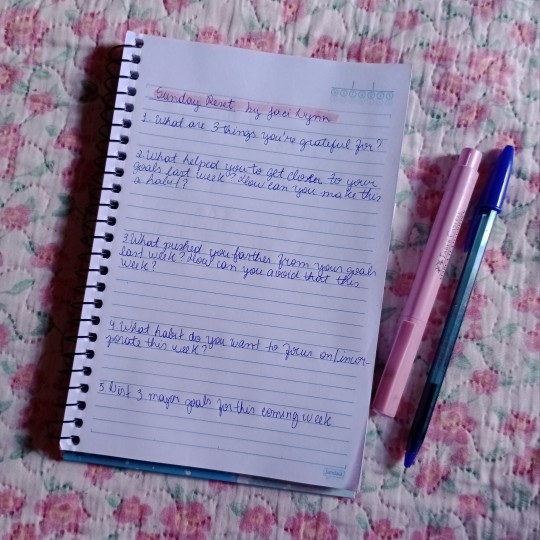 Sunday Reset by Jaci Lynn
1. What are 3 things you're grateful for?
2. What helped you to get closer to your
goals last week? How can you make this
a habit?
3. What pushed you farther from your goals
last week? How can you avoid that this
week?
4. What habit do you want to focus on/incor-
porate this week?
5. List 3 major goals for this coming week